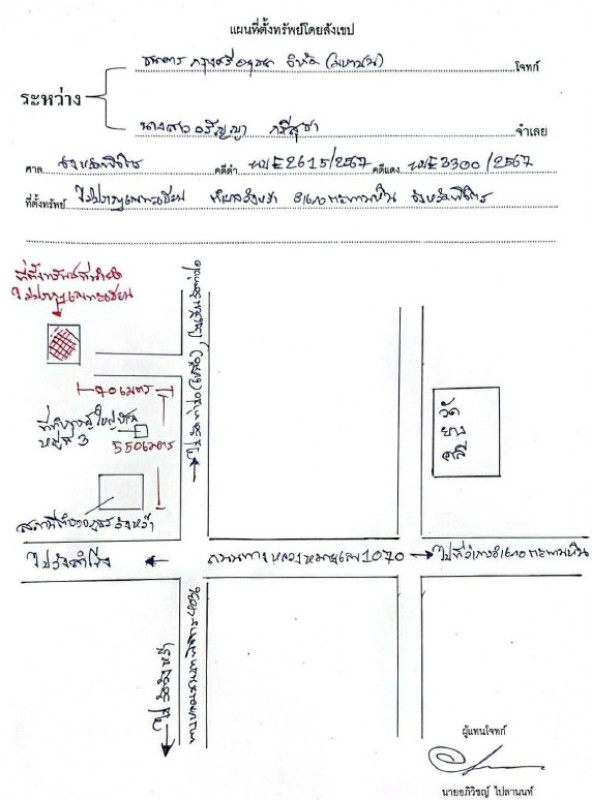 แผนที่ตั้งทรัพย์โดยสังเขป
ธนาคาร กรุงศรีอยุธยา จำกัด (มหาชน) โจทก์
ระหว่าง
นางสาวอริญญา ศรีสุชา จำเลย
ศาล จังหวัดพิจิตร คดีดำ ผบE2615/2567 คดีแดง ผบE3300/2567
ที่ตั้งทรัพย์ ไม่ปรากฏเลขทะเบียน ตำบลวังหว้า อำเภอตะพานหิน จังหวัดพิจิตร
ที่ตั้งทรัพย์ที่
ไม่ปรากฏเลขทะเบียน
70 เมตร
ที่ทำการผู้ใหญ่บ้าน
หมู่ที่ 3
550 เมตร
สถานีตำรวจภูธรวังหว้า
วัด
ยาง
ไปวังสำโรง
ถนนทางหลวงหมายเลข 1070
ไปที่ว่าการอำเภอตะพานหิน
ไปวัดวังหว้า
ผู้แทนโจทก์
นายอภิวิชญ์ ไปลานนท์